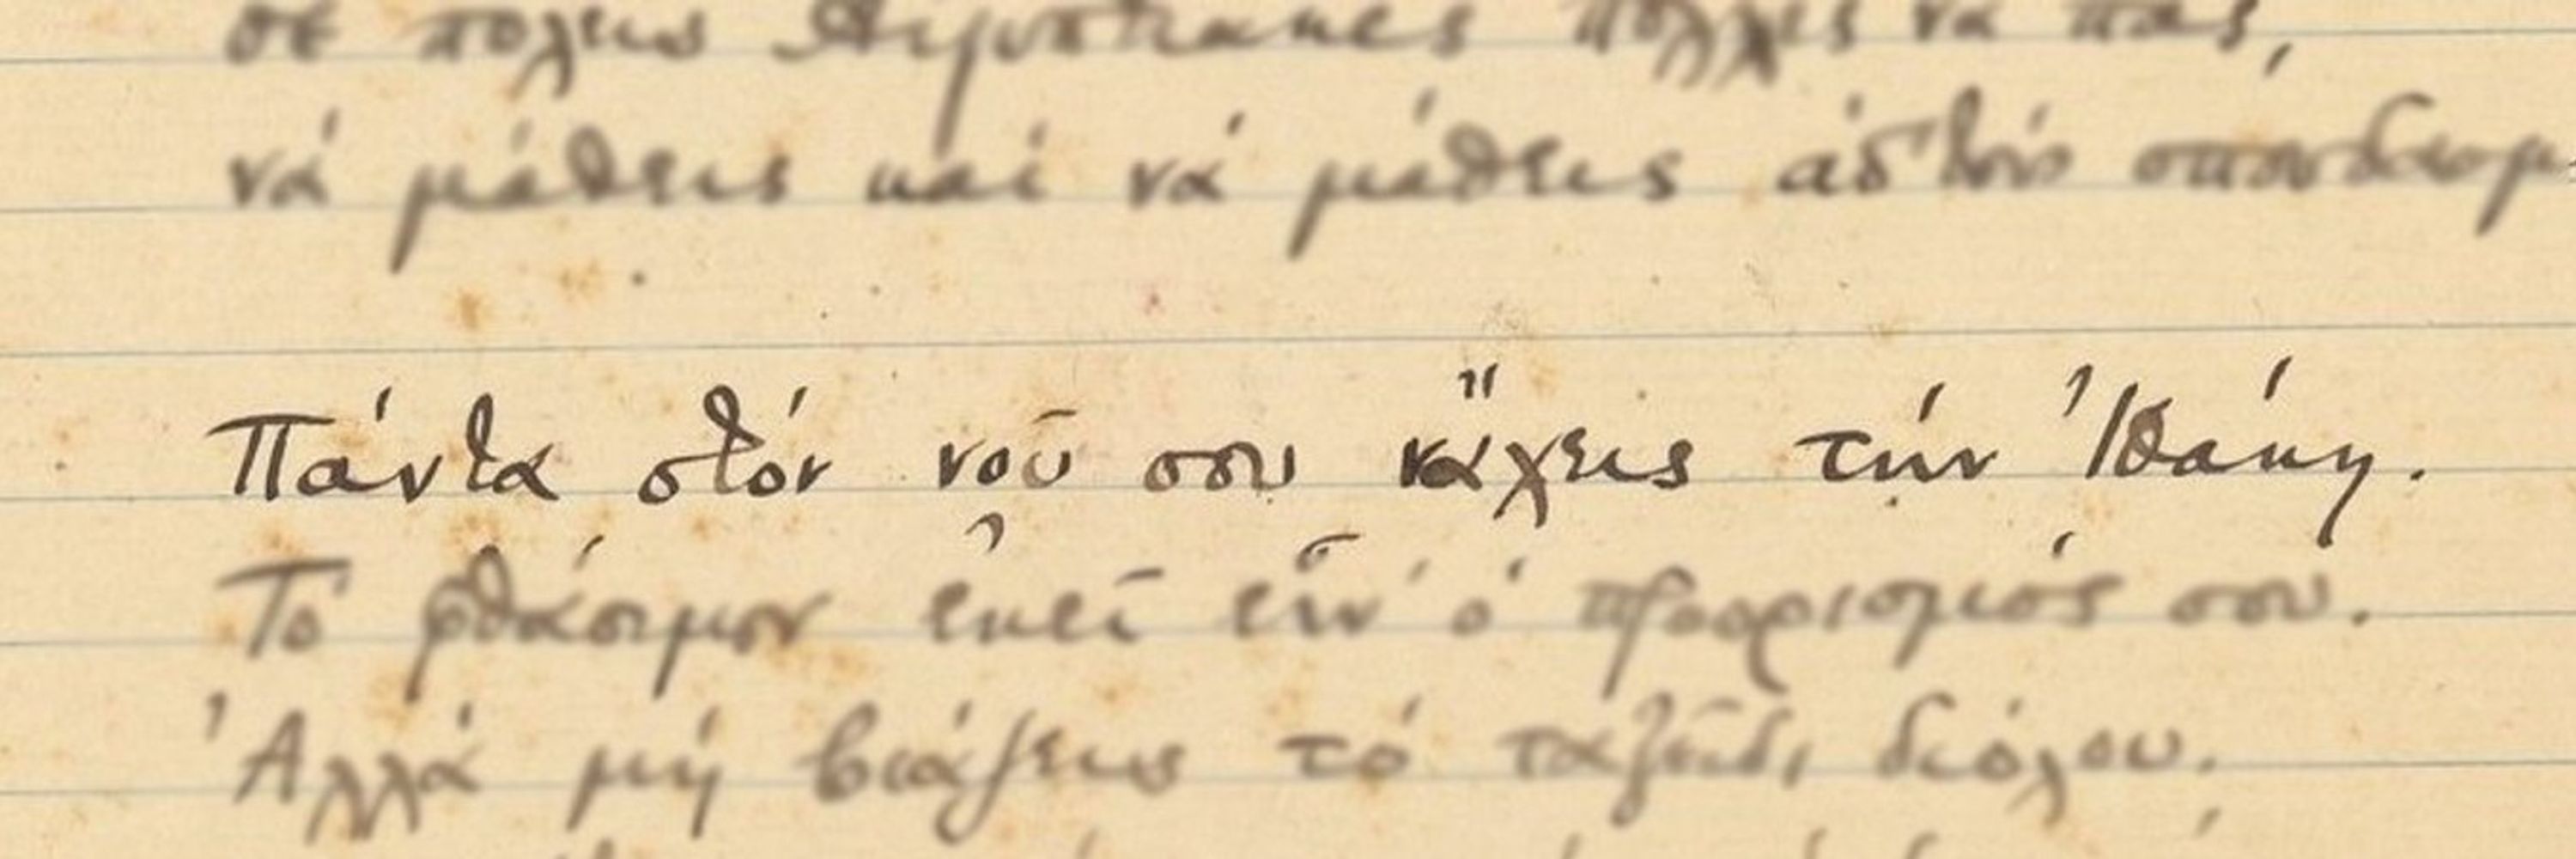 σε πόλεις Αιγυπτιακές πολλές νά πᾶς,
νά μάθεις καί νά μάθεις ἀπ' τούς
Πάντα στόν νοῦ σου νἄχεις τήν Ἰθάκη.
Τό φθάσιμον ἐκεῖ εἶν' ὁ προορισμός σου.
Ἀλλά μή βιάζεις τό ταξεῖδι διόλου.